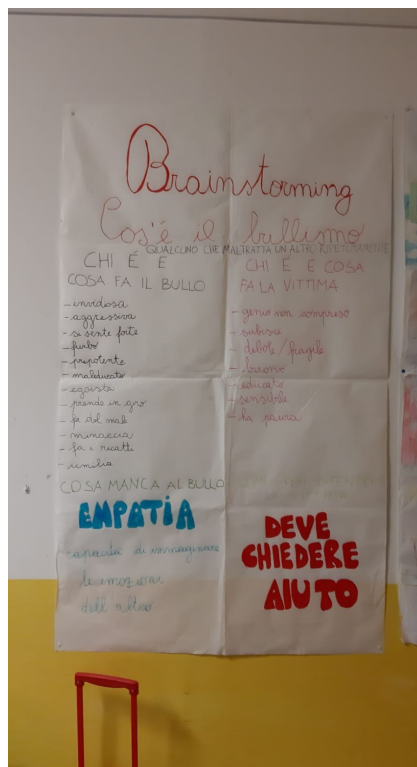 Brainstorming
Cos'é il bullismo
QUALCUNO CHE MALTRATTA UN ALTRO RIPETUTAMENTE
CHI É E
COSA FA IL BULLO
- invidiosa
- aggressiva
- si sente forte
- furbo
- prepotente
- maleducato
- egoista
- prende in giro
- fa del male
- minaccia
- fa i ricatti
- umilia
COSA MANCA AL BULLO
EMPATIA
- capacità di immaginare
le emozioni
dell'altro
CHI É E COSA
FA LA VITTIMA
- genio non compreso
- subisce
- debole / fragile
- buono
- educato
- sensibile
- ha paura
DEVE
CHIEDERE
AIUTO